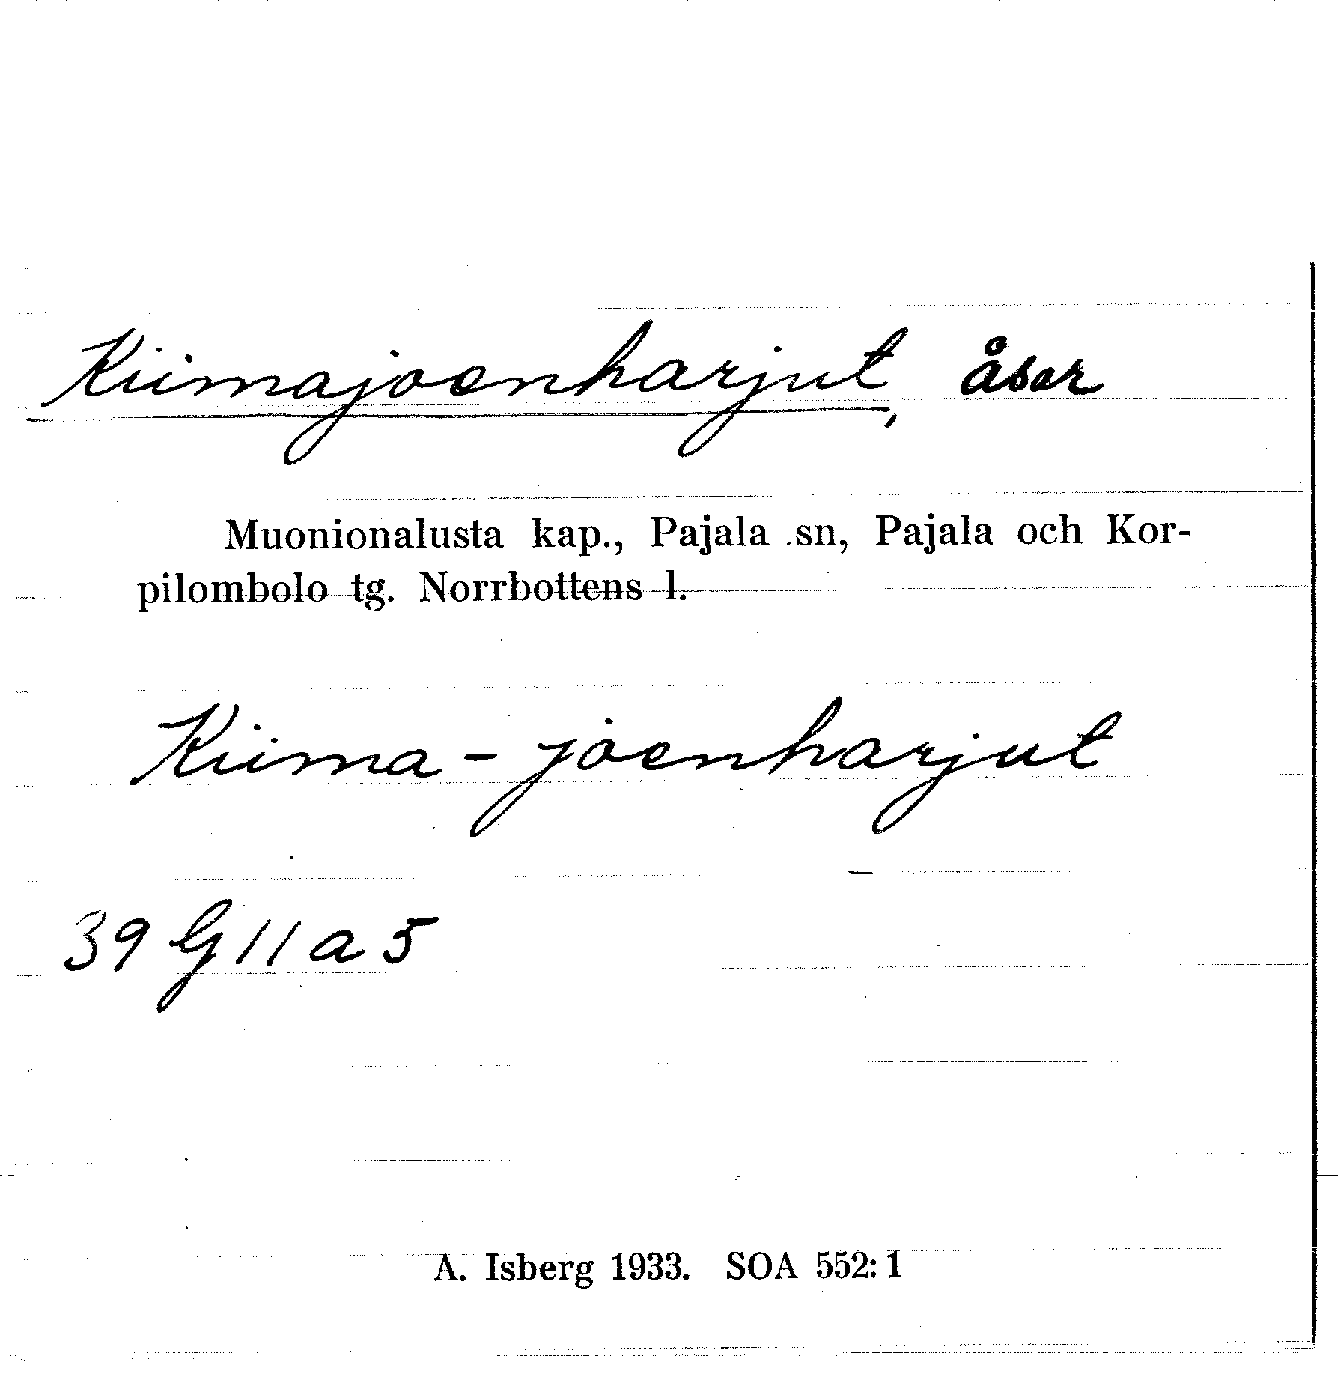 Kiimajoenharjut, åsar
Muonionalusta kap., Pajala sn, Pajala och Kor-
pilombolo tg. Norrbottens l.
Kiima - joenharjut
39 G 11 a 5
A. Isberg 1933. SOA 552: 1